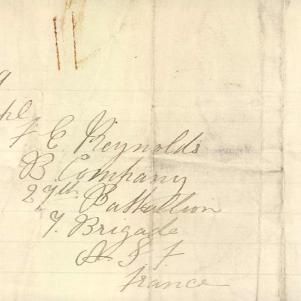 F E Reynolds
B Company
29th Battallion
7. Brigade
A. I F
France